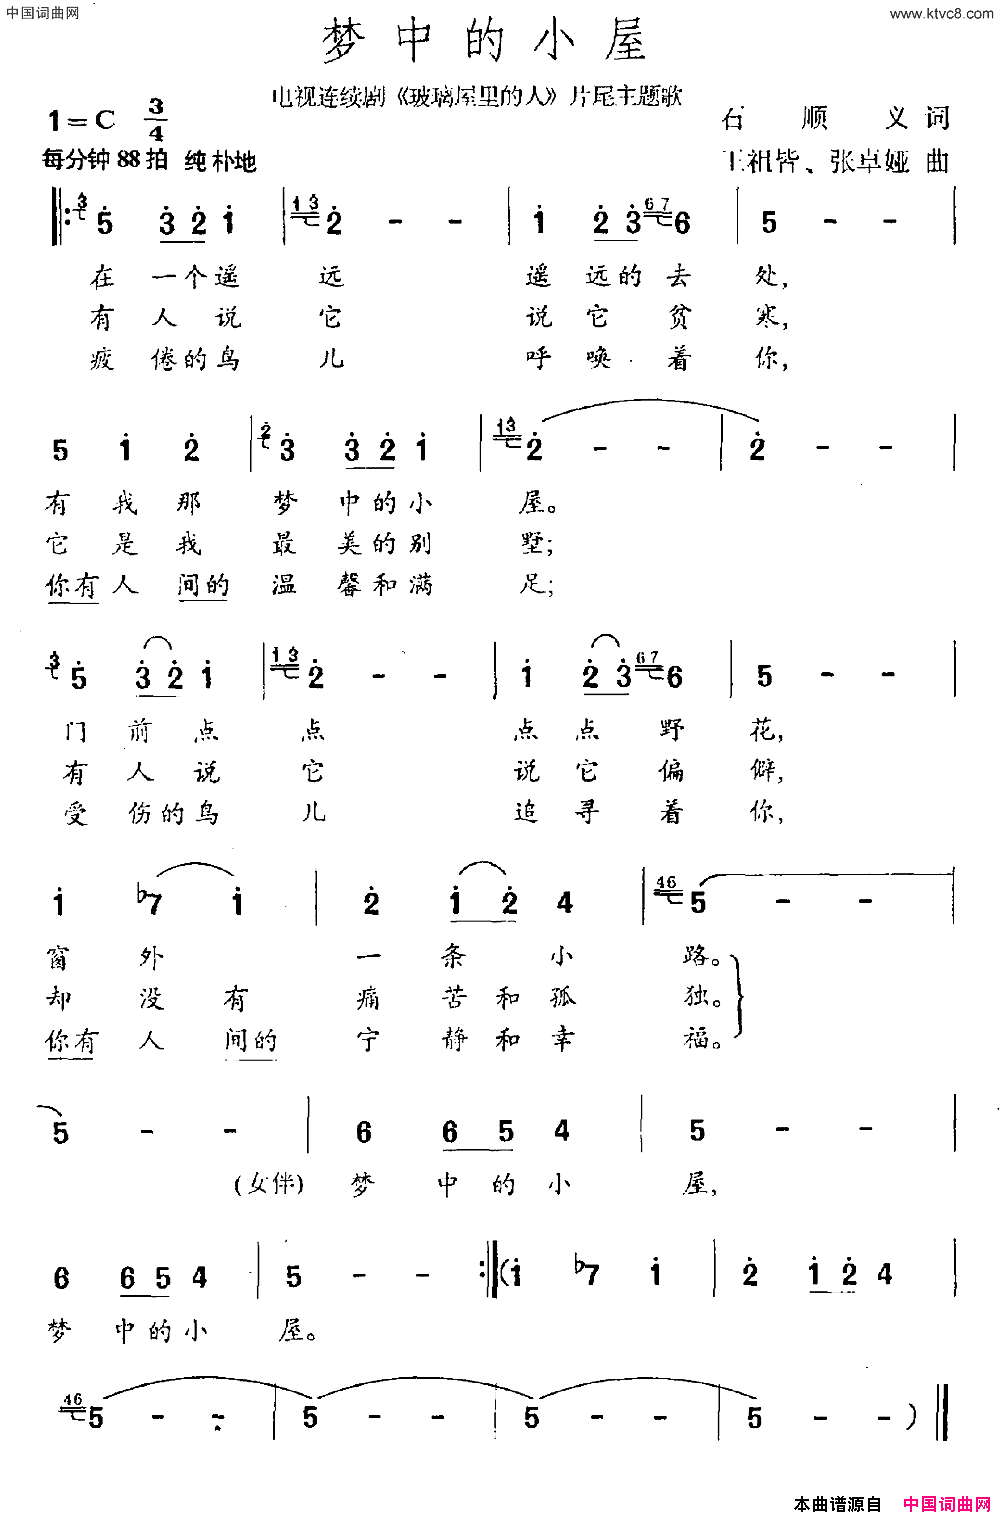 中国词曲网
www.ktvc8.com
梦中的小屋
电视连续剧《玻璃屋里的人》片尾主题歌
1=C 3/4
石顺义词
每分钟88拍 纯朴地
王祖皆、张卓娅 曲
3 5 3 2 1 | 13 2 - - | 1 2 3 67 6 | 5 - - |
在一个遥远 遥远的去处,
有人说它 说它贫寒,
疲倦的鸟儿 呼唤着你,
5 1 2 | 2 3 3 2 1 | 13 2 - - | 2 - - |
有我那梦中的小屋。
它是我最美的别墅;
你有人间的温馨和满足;
3 5 3 2 1 | 13 2 - - | 1 2 3 67 6 | 5 - - |
门前点点 点点野花,
有人说它 说它偏僻,
受伤的鸟儿 追寻着你,
1 ♭7 1 | 2 1 2 4 | 46 5 - - |
窗外一条小路。
却没有痛苦和孤独。
你有人间的宁静和幸福。
5 - - | 6 6 5 4 | 5 - - |
(女伴)梦中的小屋,
6 6 5 4 | 5 - - :| (1 ♭7 1 | 2 1 2 4 |
梦中的小屋。
46 5 - - | 5 - - | 5 - - | 5 - - )
本曲谱源自 中国词曲网